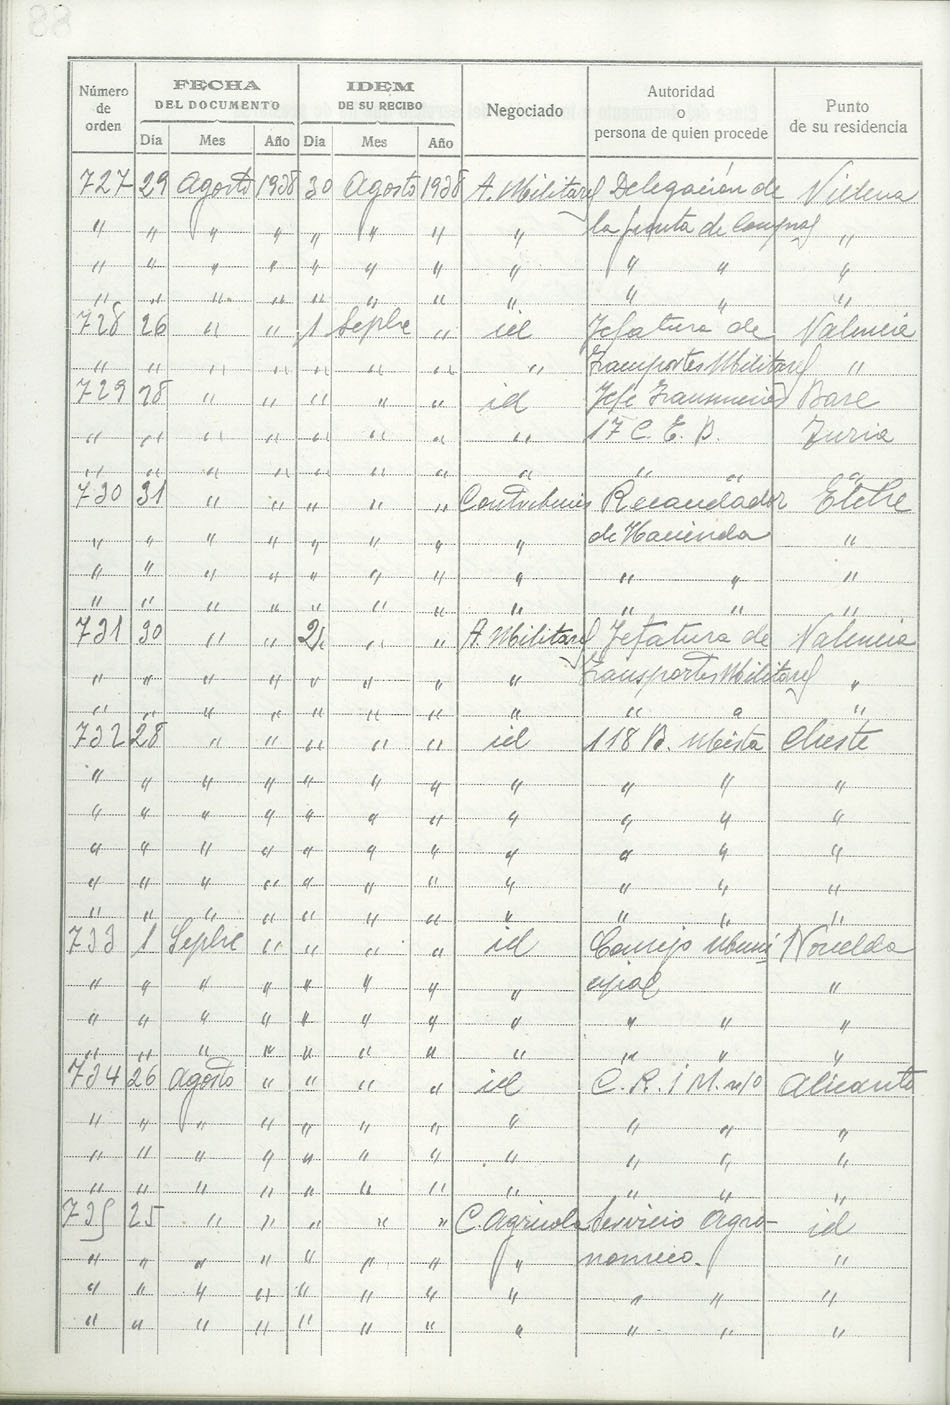 88
Número de orden | FECHA DEL DOCUMENTO | IDEM DE SU RECIBO | Negociado | Autoridad o persona de quien procede | Punto de su residencia
Día Mes Año Día Mes Año
727 29 Agosto 1938 30 Agosto 1938 A. Militares Delegación de Villena
" " " " " " " " la Junta de Compras "
" " " " " " " " " " "
" " " " " " " " " " "
728 26 " " 1 Sepbre " id Jefatura de Valencia
" " " " " " " " Transportes Militares "
729 28 " " " " " id Jefe Base
" " " " " " " " 17 C. E. B. Turia
" " " " " " " " " " "
730 31 " " " " " Recaudador Elche
" " " " " " " " de Hacienda "
" " " " " " " " " " "
" " " " " " " " " " "
731 30 " " 2 " " A. Militares Jefatura de Valencia
" " " " " " " " Transportes Militares "
" " " " " " " " " " "
732 28 " " " " " id 118 B. Mixta Cheste
" " " " " " " " " " "
" " " " " " " " " " "
" " " " " " " " " " "
" " " " " " " " " " "
" " " " " " " " " " "
733 1 Sepbre " " " " id Consejo Muni Novelda
" " " " " " " " cipal "
" " " " " " " " " " "
" " " " " " " " " " "
734 26 Agosto " " " " id C. R. i M. nº 10 Alicante
" " " " " " " " " " "
" " " " " " " " " " "
" " " " " " " " " " "
735 25 " " " " " C. Agricola Servicio Agro- id
" " " " " " " " nomico. "
" " " " " " " " " " "
" " " " " " " " " " "